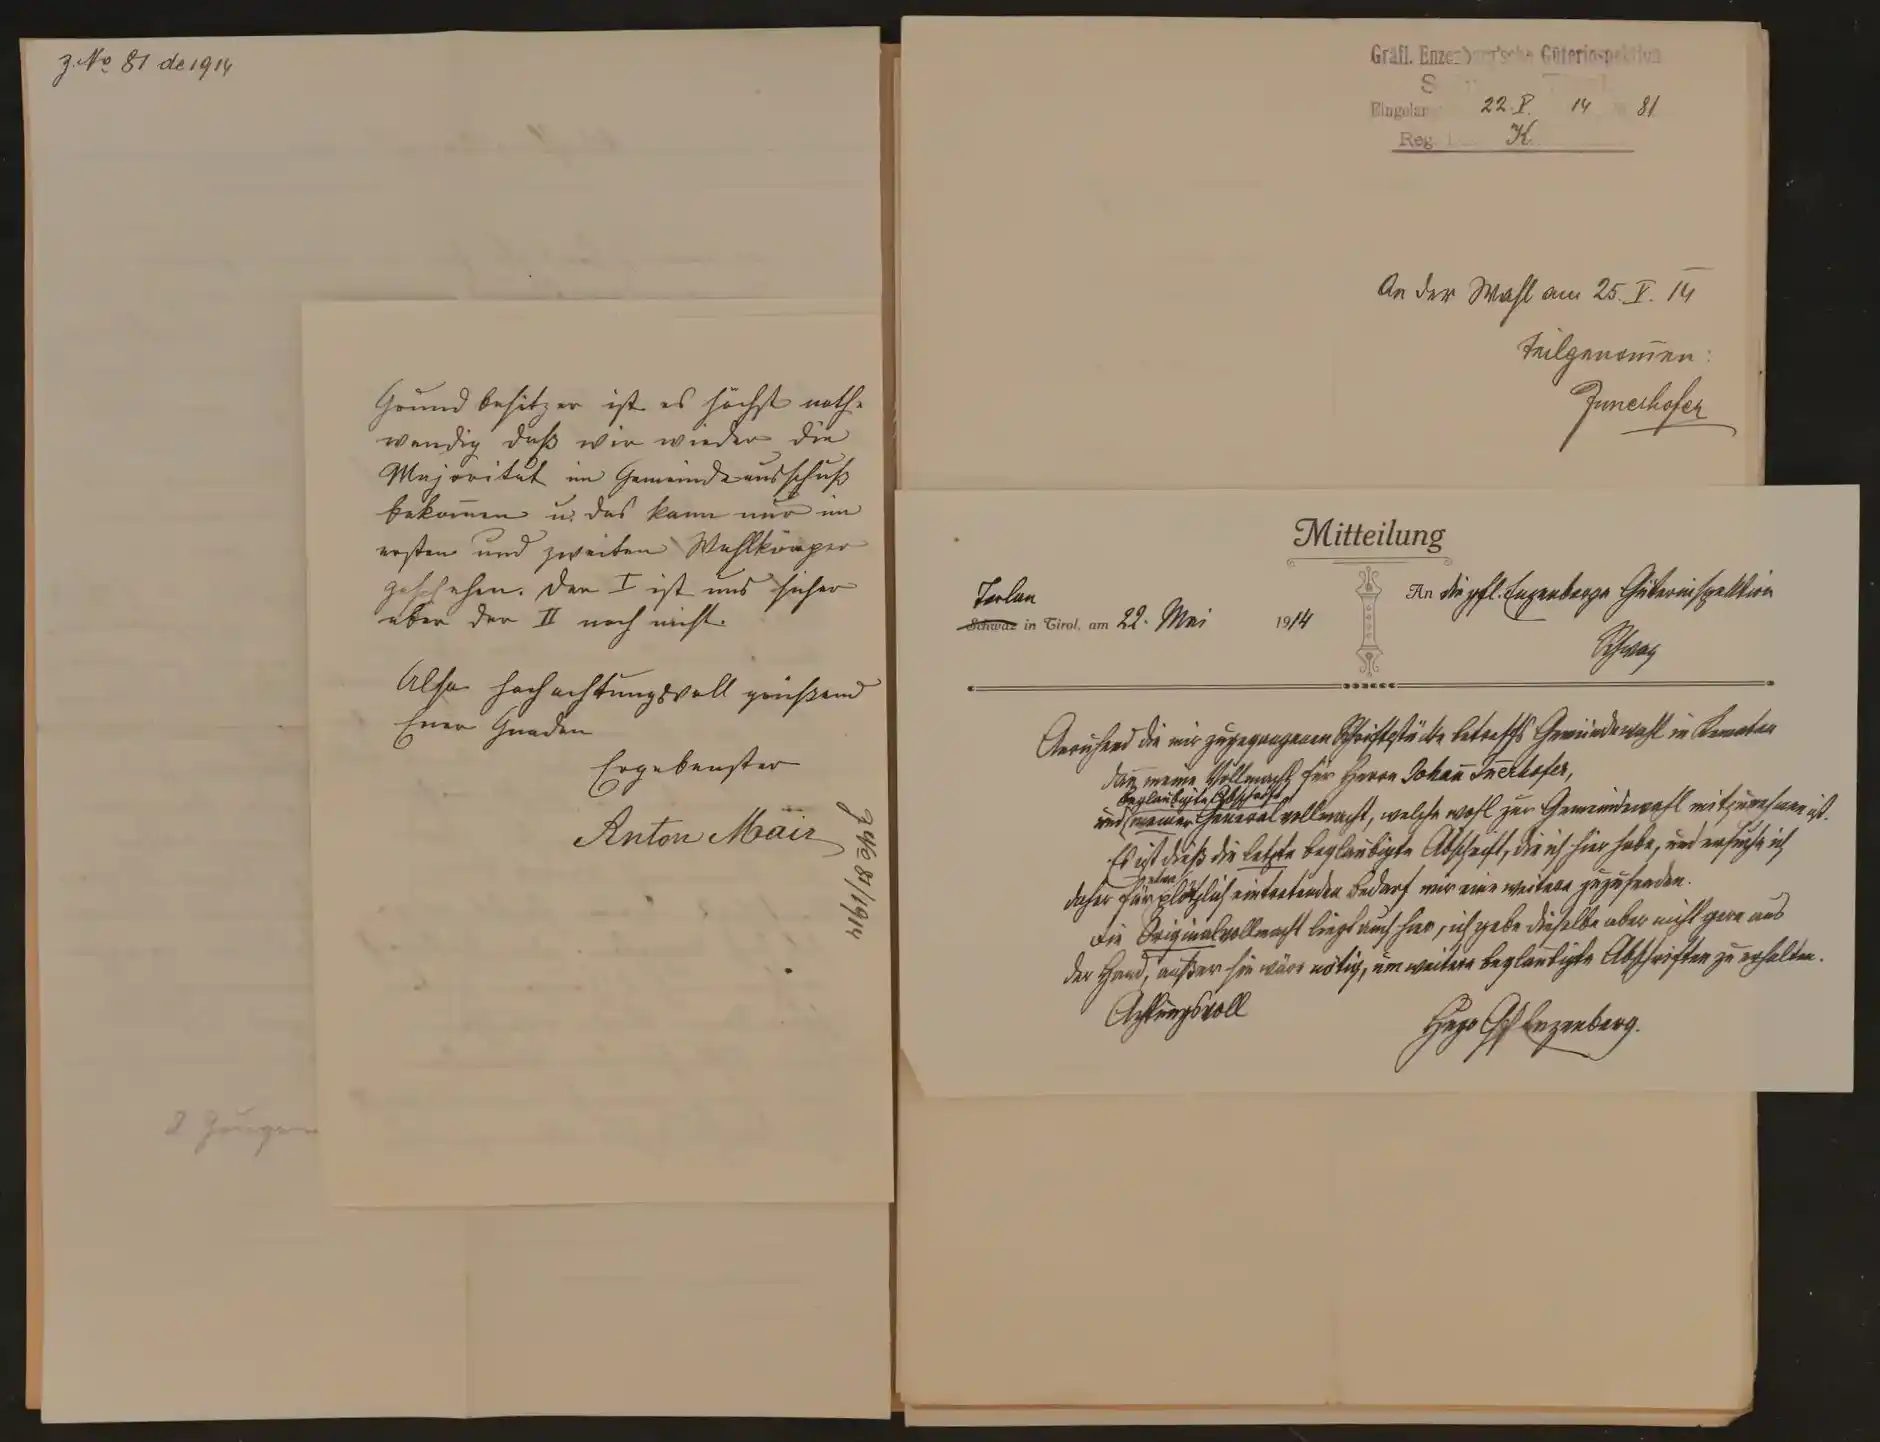 z. No 81 de 1914
Grund besitzer ist es höchst noth-
wendig daß wir wieder die
Majorität im Gemeindeausschuß
bekom̅en u. das kann nur im
ersten und zweiten Wahlkörper
geschehen. Der I ist uns sicher
aber der II noch nicht.
Also hochachtungsvoll grüßend
Euer Gnaden
Ergebenster
Anton Mair
z No 81/1914
2 Zeugen
Gräfl. Enzenberg'sche Güterinspektion
Eingelan 22. V. 14 81
Reg. K.
An der Wahl am 25. V. 14
teilgenom̅en:
Innerhofer
Mitteilung
Terlan
Schwaz in Tirol, am 22. Mai 1914
An die gfl. Enzenbergs Güterinspektion
Schwaz
Anruhend die mir zugegangenen Schriftstücke betreffs Gemeindewahl in Kematen
dan̅ meine Vollmacht für Herrn Johan̅ In̅erhofer,
beglaubigte Abschrift
und meiner Generalvollmacht, welche wohl zur Gemeindewahl mitzunehmen ist.
Es ist dieß die letzte beglaubigte Abschrift, die ich hier habe, und ersuche ich
etwa
daher für plötzlich eintretenden Bedarf mir eine weitere zuzusenden.
Die Originalvollmacht liegt auch hier, ich gebe dieselbe aber nicht gern aus
der Hand, außer sie wäre nötig, um weitere beglaubigte Abschriften zu erhalten.
Achtungsvoll
Hugo Gf Enzenberg.